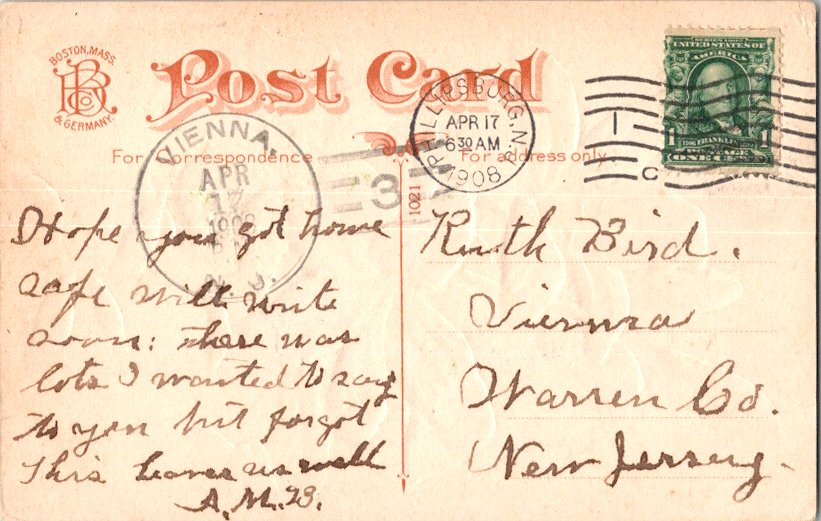 BOSTON, MASS.
BRCo
& GERMANY.
Post Card
For Correspondence
For address only.
VIENNA,
APR
17
1908
N. J.
3
1021
PHILLIPSBURG, N.J.
APR 17
6 30 AM
1908
1
C
SERIES 1902
UNITED STATES OF
AMERICA
1 FRANKLIN 1
ONE CENT
I Hope you got home
safe will write
soon: there was
lots I wanted to say
to you but forgot
This leaves us well
A.M.B.
Ruth Bird.
Vienna
Warren Co.
New Jersey.